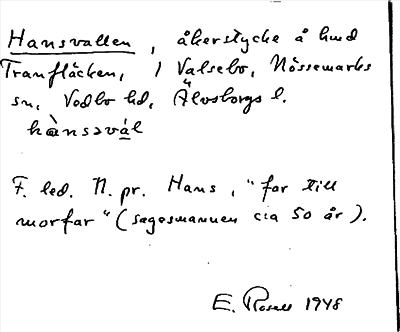 Hansvallen, åkerstycke å hmd
Tranfläcken, 1 Valsebo, Nössemarks
sn, Vedbo hd, Älvsborgs l.
hànsəvál
F. led. N. pr. Hans, "far till
morfar" (sagesmannen cia 50 år).
E. Rosell 1948